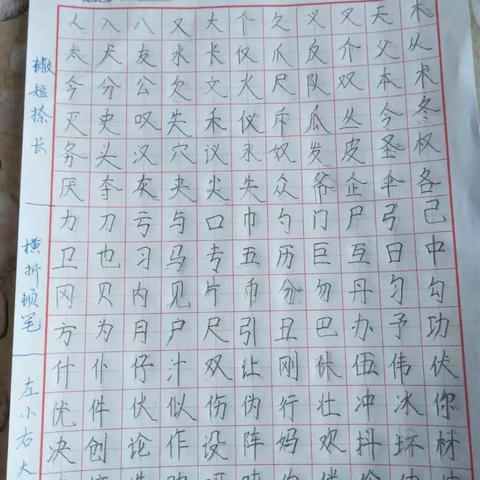 人入八又大个久义叉天木
太犬友水长仅爪反介父从
今分公欠文火尺队双本术
灭史叹失禾仪斥瓜丛令冬
务头汉穴议永奴发皮圣权
厌夺灰夹尖失众爷企伞各
力刀亏与口巾勺门尸弓己
卫也习马专五历巨互日中
冈贝内见片币分勿丹匀勾
方为月户尺引丑巴办予功
什仆仔汁双让刚休伍伟伏
优件伏似伤伪行壮冲冰你
决创论作设阵妈欢抖坏材
撇短捺长
横折顿笔
左小右大